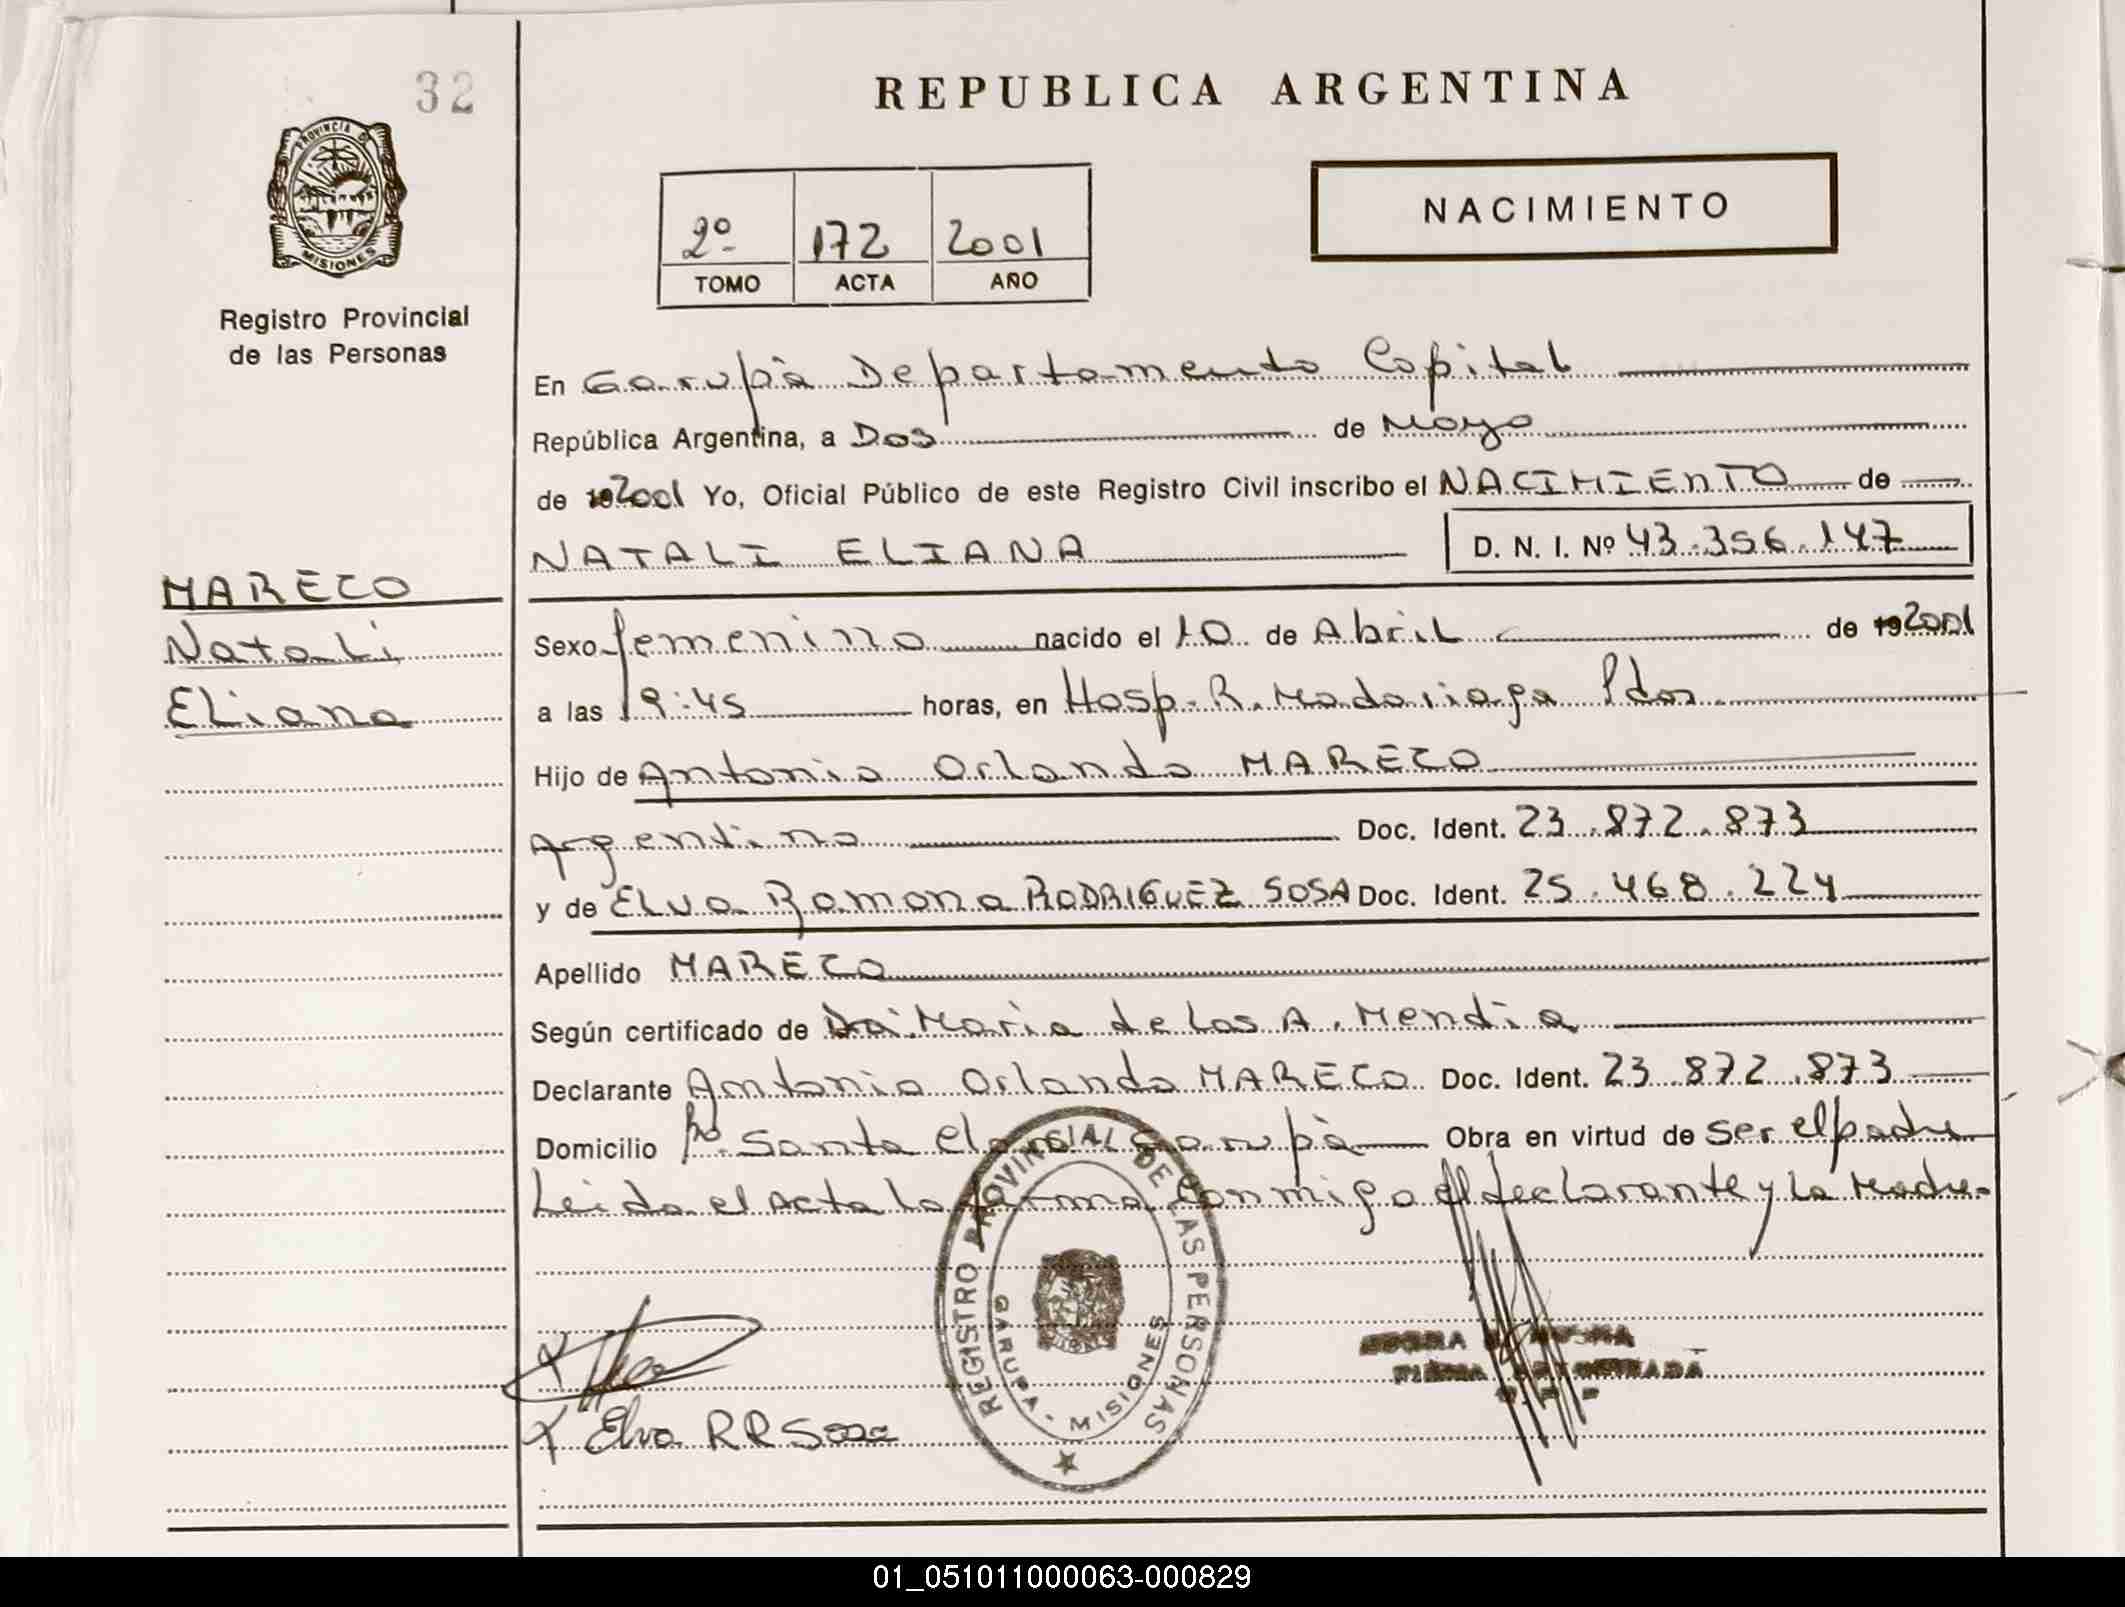 32
PROVINCIA DE
MISIONES
Registro Provincial
de las Personas
MARECO
Natali
Eliana
REPUBLICA ARGENTINA
2º 172 2001
TOMO ACTA AÑO
NACIMIENTO
En Garupà Departamento Capital
República Argentina, a Dos de Mayo
de 2001 Yo, Oficial Público de este Registro Civil inscribo el NACIMIENTO de
NATALI ELIANA D. N. I. Nº 43.356.147
Sexo femenino nacido el 10 de Abril de 192001
a las 19:45 horas, en Hosp. R. Madariaga Pdas.
Hijo de Antonio Orlando MARECO
Argentino Doc. Ident. 23.872.873
y de Elva Ramona RODRIGUEZ SOSA Doc. Ident. 25.468.224
Apellido MARECO
Según certificado de Dra. Maria de Los A. Mendia
Declarante Antonio Orlando MARECO Doc. Ident. 23.872.873
Domicilio Bº Santa Clara Garupà Obra en virtud de ser el padre
Leida el Acta la firma Conmigo el declarante y la Madre.
REGISTRO PROVINCIAL DE LAS PERSONAS
GARUPA - MISIONES
Elva R R Sosa
01_051011000063-000829